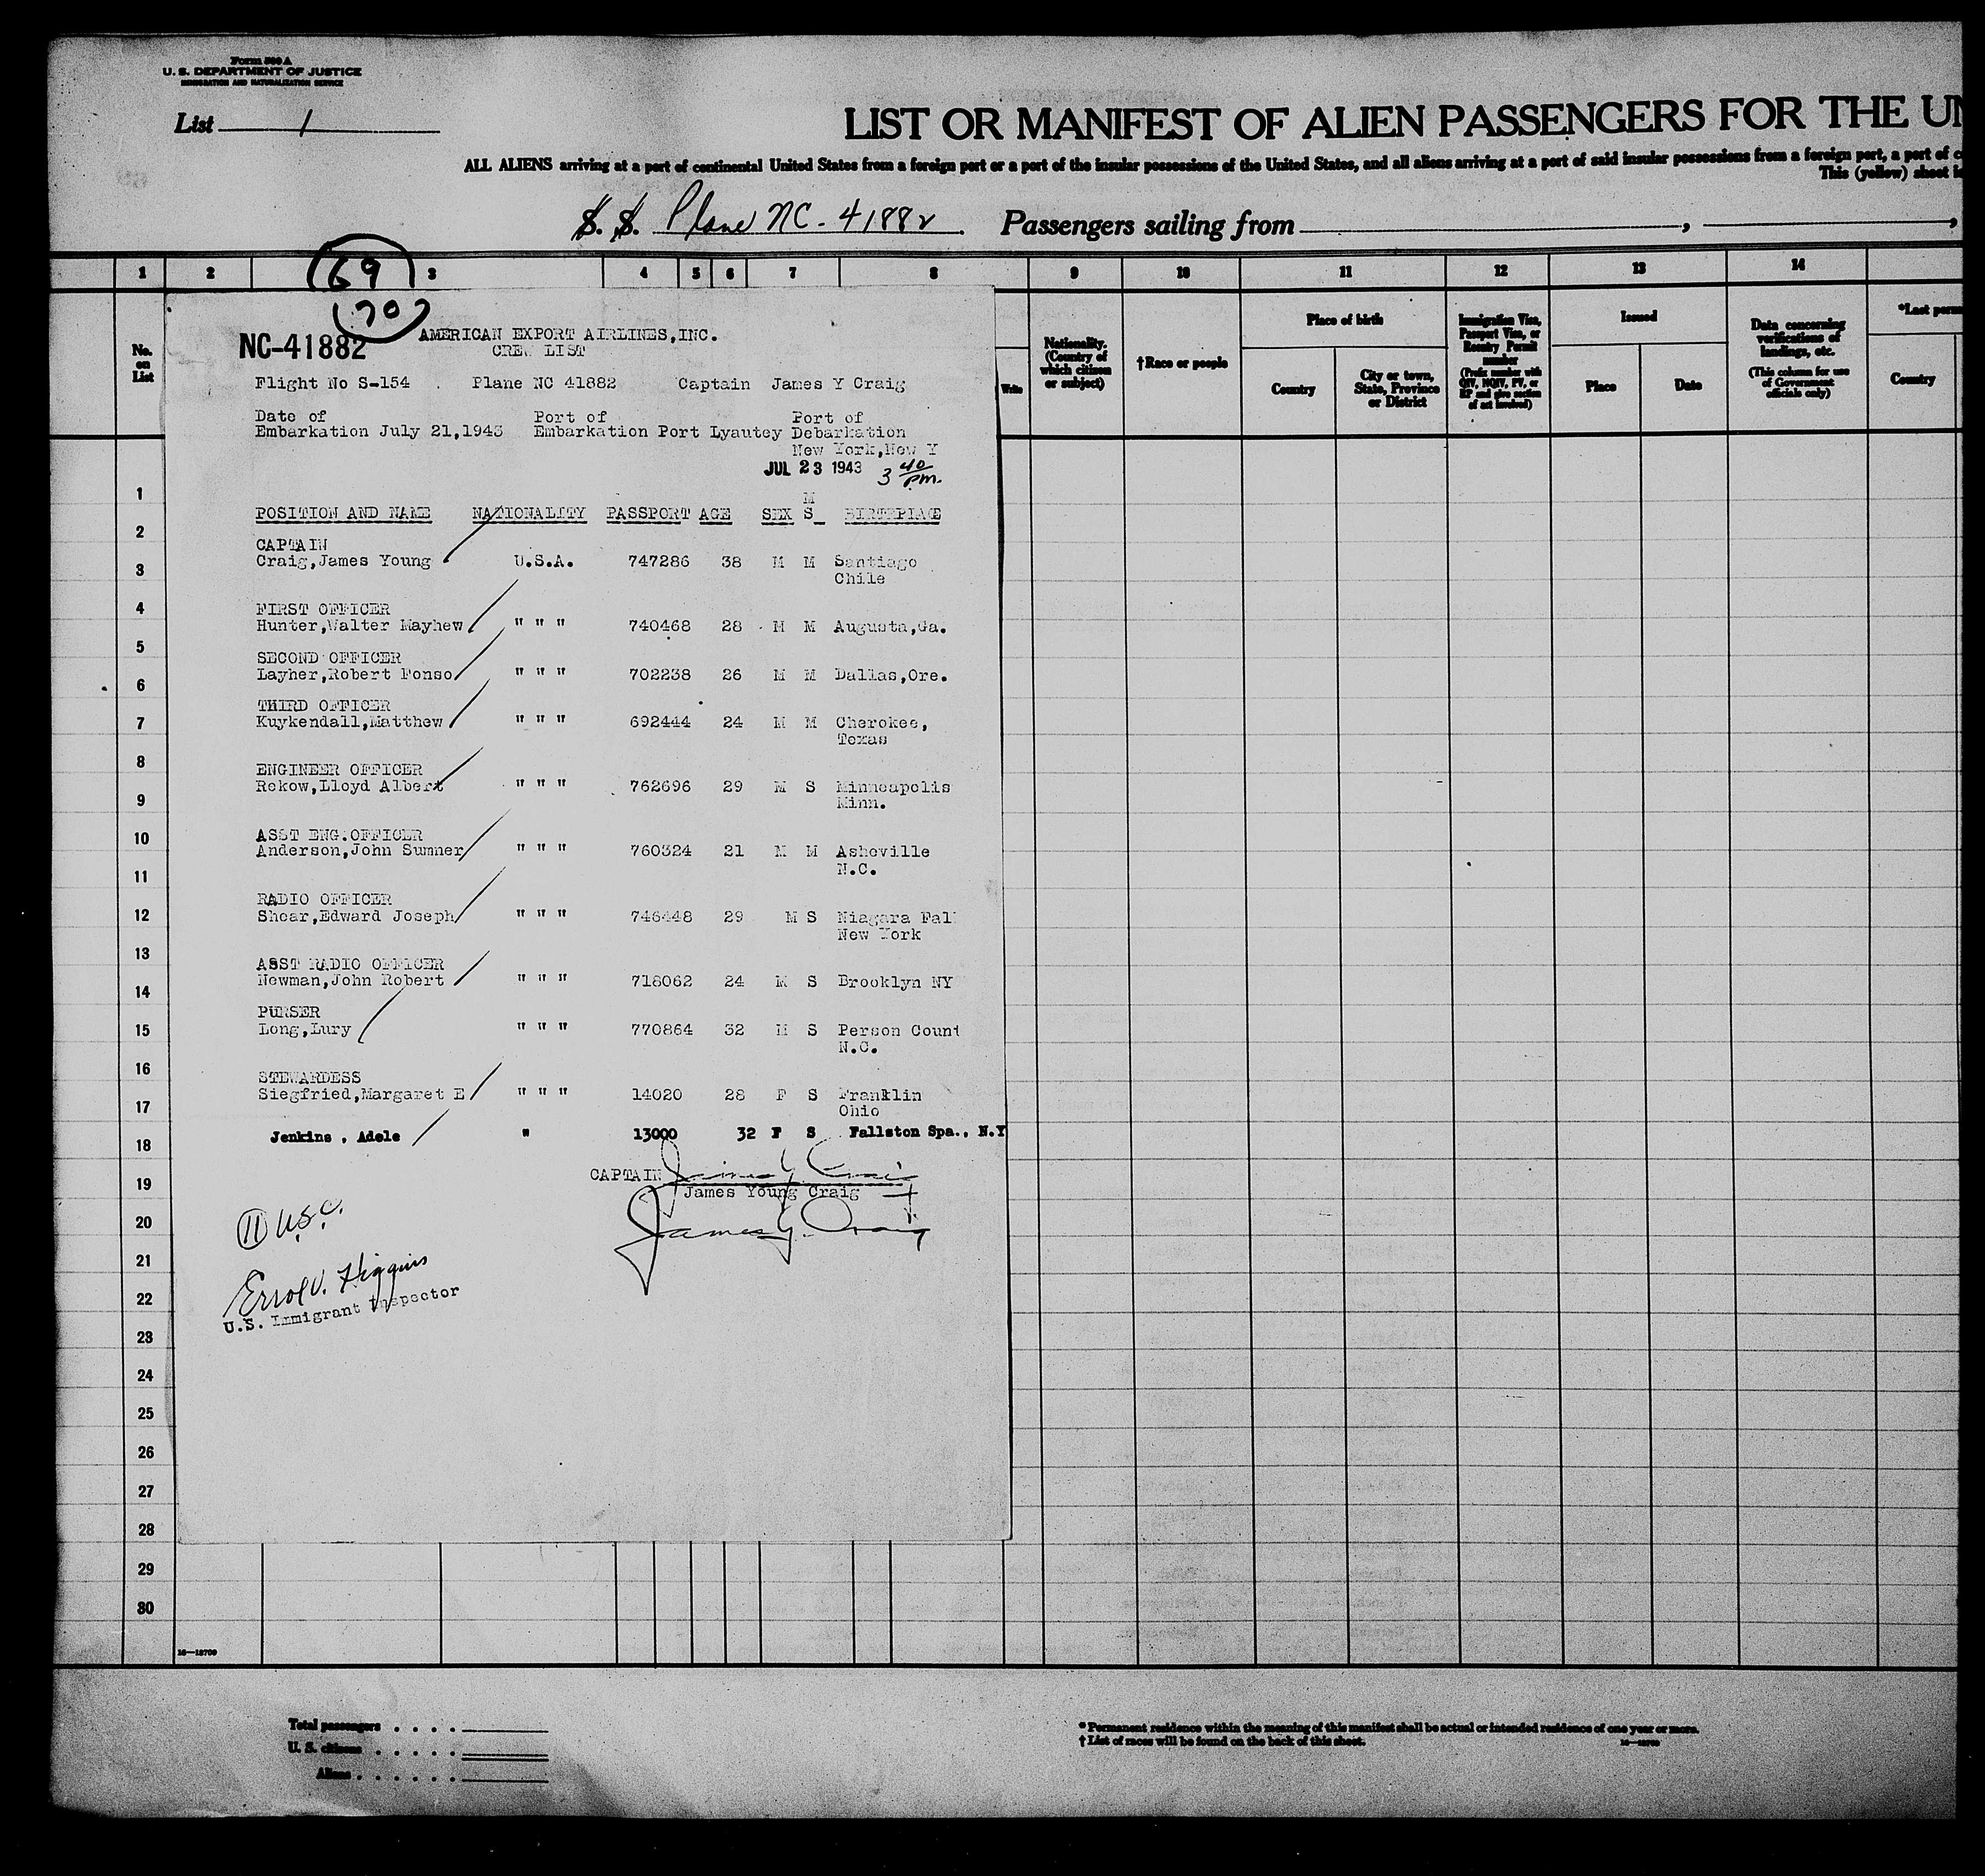 Form 500 A
U. S. DEPARTMENT OF JUSTICE
IMMIGRATION AND NATURALIZATION SERVICE
List 1
LIST OR MANIFEST OF ALIEN PASSENGERS FOR THE UN
ALL ALIENS arriving at a port of continental United States from a foreign port or a port of the insular possessions of the United States, and all aliens arriving at a port of said insular possessions from a foreign port, a port of c
This (yellow) sheet i
S. S. Plane NC-41882 Passengers sailing from
69
70
1 2 3 4 5 6 7 8 9 10 11 12 13 14
No. on List
Write
Nationality. (Country of which citizen or subject)
†Race or people
Place of birth
Country
City or town, State, Province or District
Immigration Visa, Passport Visa, or Reentry Permit number
(Prefix number with QIV, NQIV, PV, or RP and give section of act involved)
Issued
Place
Date
Data concerning verifications of landings, etc.
(This column for use of Government officials only)
*Last perm
Country
AMERICAN EXPORT AIRLINES,INC.
NC-41882
CREW LIST
Flight No S-154 . Plane NC 41882 Captain James Y Craig
Date of Port of Port of
Embarkation July 21,1943 Embarkation Port Lyautey Debarkation
New York,New Y
JUL 23 1943 3 40 pm.
M
POSITION AND NAME NATIONALITY PASSPORT AGE SEX S BIRTHPLACE
CAPTAIN
Craig,James Young U.S.A. 747286 38 M M Santiago
Chile
FIRST OFFICER
Hunter,Walter Mayhew " " " 740468 28 M M Augusta,Ga.
SECOND OFFICER
Layher,Robert Fonso " " " 702238 26 M M Dallas,Ore.
THIRD OFFICER
Kuykendall,Matthew " " " 692444 24 M M Cherokee,
Texas
ENGINEER OFFICER
Rekow,Lloyd Albert " " " 762696 29 M S Minneapolis
Minn.
ASST ENG.OFFICER
Anderson,John Sumner " " " 760324 21 M M Asheville
N.C.
RADIO OFFICER
Shear,Edward Joseph " " " 746448 29 M S Niagara Fal
New York
ASST RADIO OFFICER
Newman,John Robert " " " 718062 24 M S Brooklyn NY
PURSER
Long,Lury " " " 770864 32 M S Person Count
N.C.
STEWARDESS
Siegfried,Margaret E " " " 14020 28 F S Franklin
Ohio
Jenkins , Adele " 13000 32 F S Fallston Spa., N.Y
CAPTAIN James Y. Craig
James Young Craig
James Y. Craig
11 U.S.C.
Errol V. Higgins
U.S. Immigrant Inspector
1
2
3
4
5
6
7
8
9
10
11
12
13
14
15
16
17
18
19
20
21
22
23
24
25
26
27
28
29
30
16—18700
Total passengers . . . .
U. S. citizens . . . . .
Aliens . . . . . .
* Permanent residence within the meaning of this manifest shall be actual or intended residence of one year or more.
† List of races will be found on the back of this sheet.
16—18700